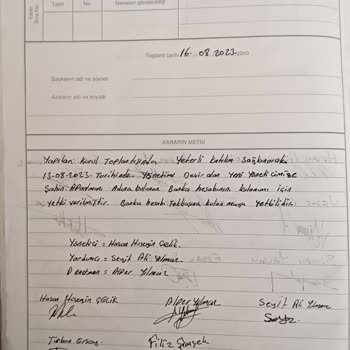 Karar
Sıra No:
Tarih
No
Nereden gönderildiği
Toplantı tarihi 16.08.2023 günü
Başkanın adı ve soyadı
Azaların adı ve soyadı
KARARIN METNİ
Yapılan Kurul Toplantısında Yeterli katılım Sağlanarak
13-08-2023 Tarihinde Yönetimi Devir alan Yeni Yöneticimize
Şahin Apartmanı Adına bulunan Banka hesabının kullanımı için
Yetki verilmiştir. Banka hesabı Tek başına kullanmaya Yetkilidir.
Yönetici = Hasan Hüseyin Çelik
Yardımcı = Seyit Ali Yılmaz
Denetman = Alper Yılmaz
Hasan Hüseyin ÇELİK Alper Yılmaz Seyit Ali Yılmaz
Turhan Filiz Şimşek